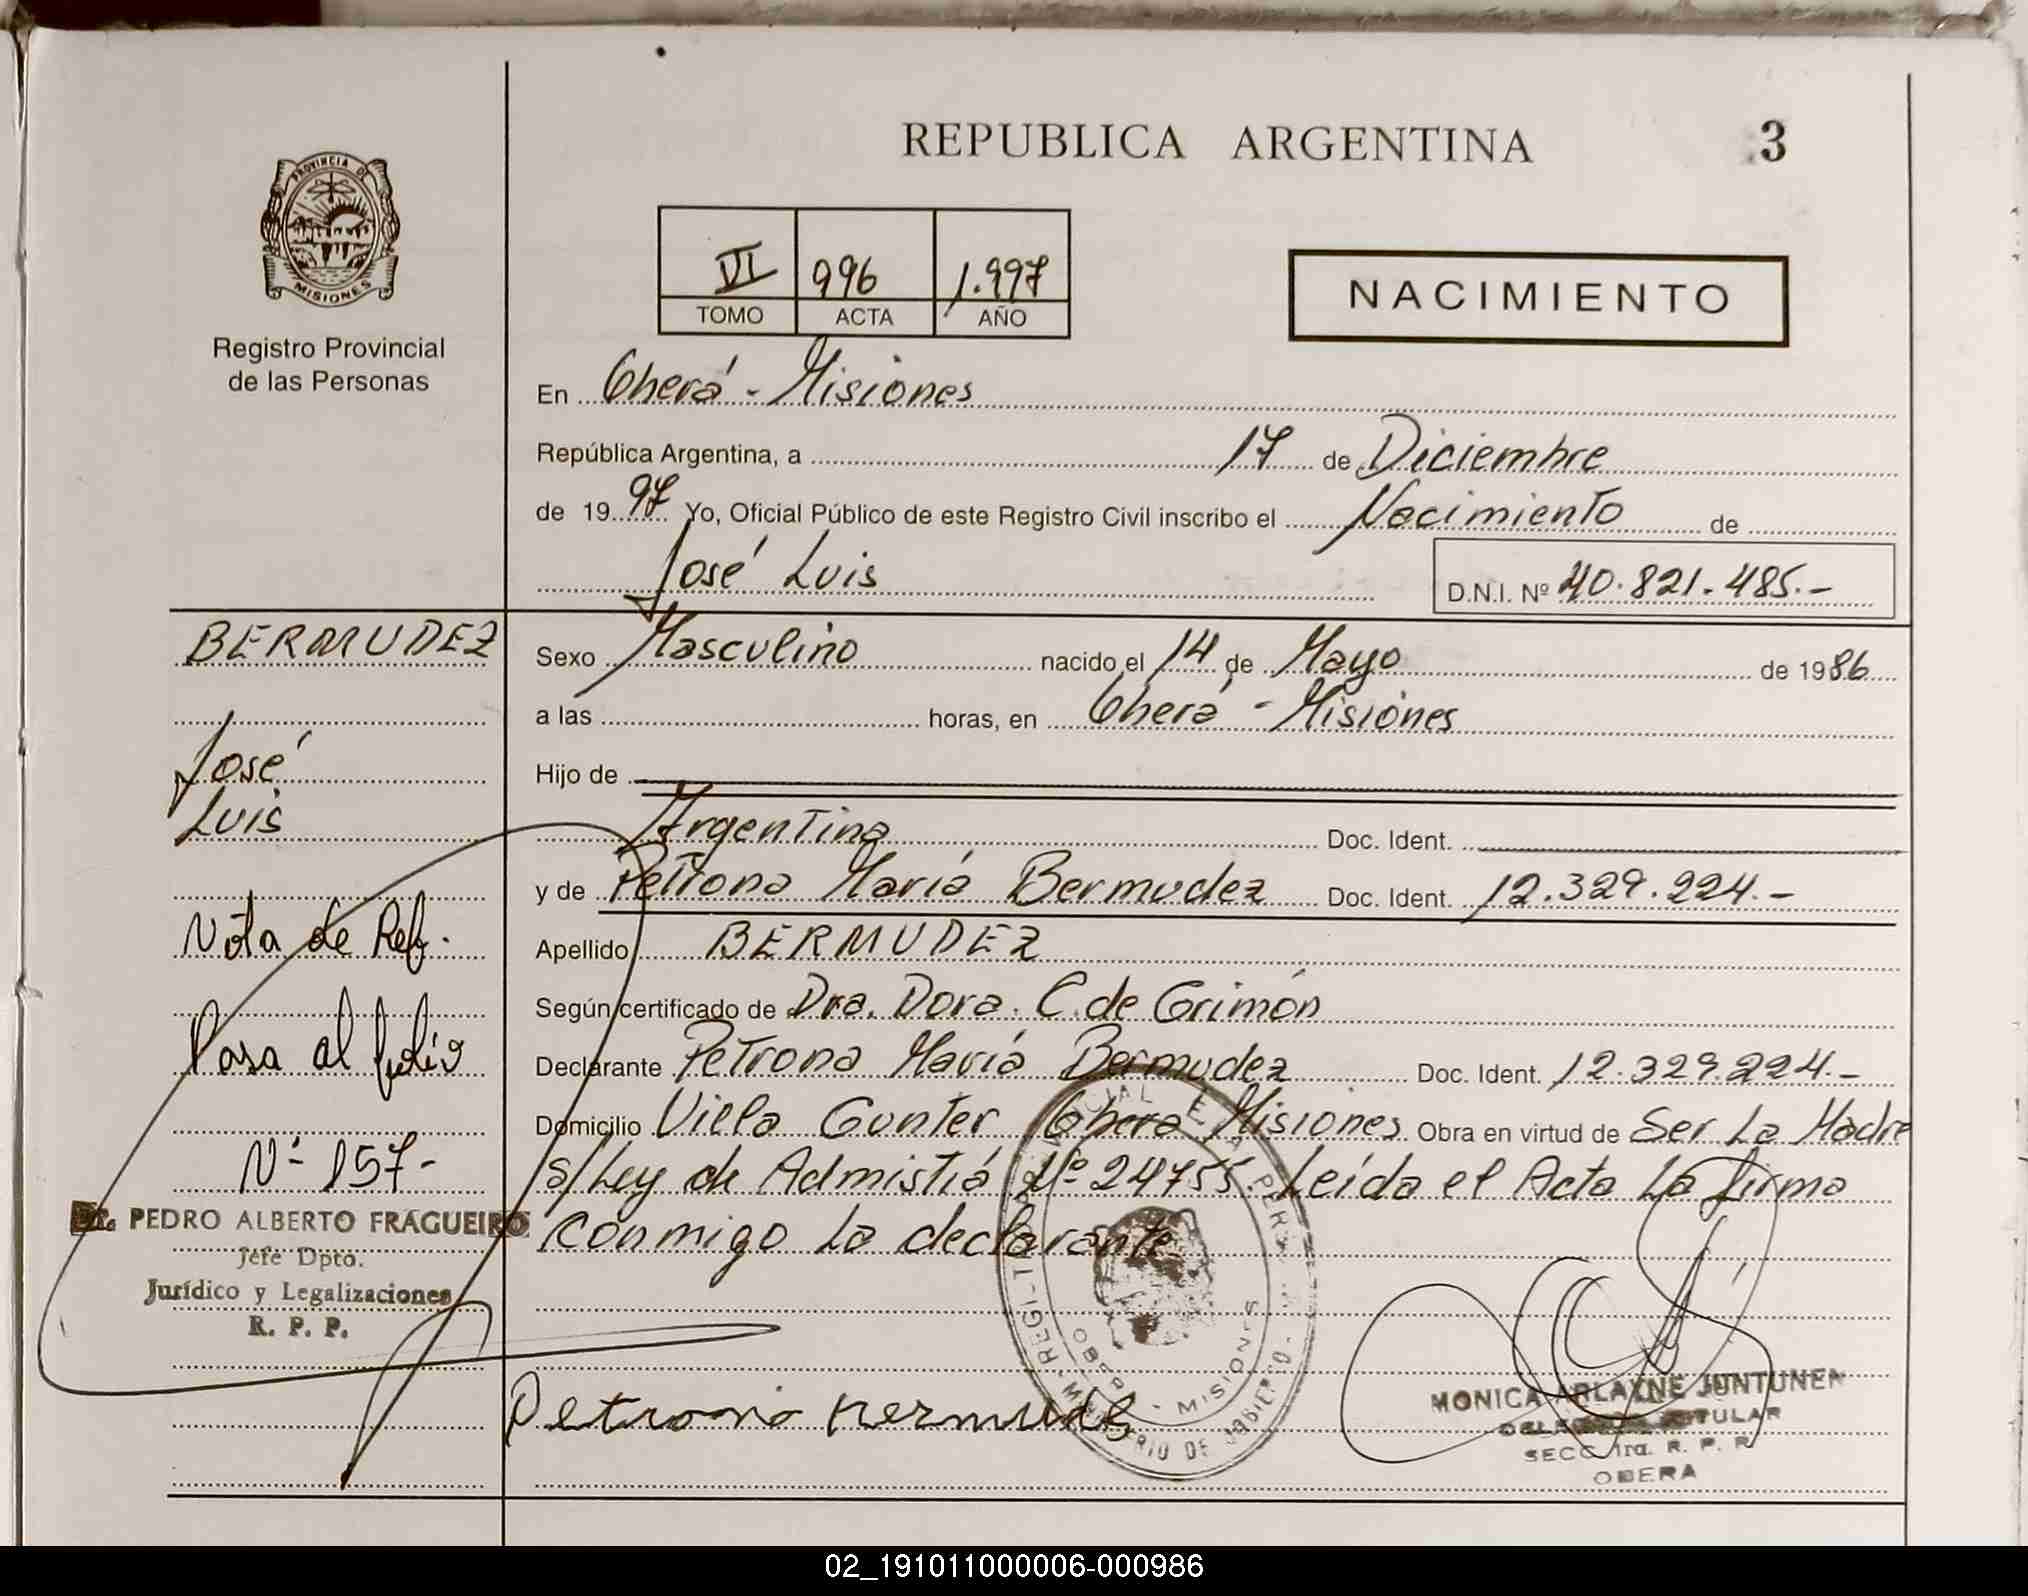 REPUBLICA ARGENTINA
3
PROVINCIA DE
MISIONES
Registro Provincial
de las Personas
VI 996 1.997
TOMO ACTA AÑO
NACIMIENTO
En Oberá - Misiones
República Argentina, a 17 de Diciembre
de 19 97 Yo, Oficial Público de este Registro Civil inscribo el Nacimiento de
José Luis
D.N.I. Nº 40.821.485.-
BERMUDEZ
José
Luis
Nota de Ref.
Pasa al folio
Nº 157-
PEDRO ALBERTO FRAGUEIRO
Jefe Dpto.
Jurídico y Legalizaciones
R. P. P.
Sexo Masculino nacido el 14 de Mayo de 1986
a las horas, en Oberá - Misiones
Hijo de
Argentina Doc. Ident.
y de Petrona María Bermudez Doc. Ident. 12.329.224.-
Apellido BERMUDEZ
Según certificado de Dra. Dora. C. de Grimón
Declarante Petrona María Bermudez Doc. Ident. 12.329.224.-
Domicilio Villa Gunter Oberá Misiones Obra en virtud de Ser La Madre
s/Ley de Admistiá Nº 24755. Leída el Acta La firma
conmigo la declarante
MISIONES
MONICA ARLAYNE JUNTUNEN
SECC. 1ra. R. P. P.
OBERA
02_191011000006-000986